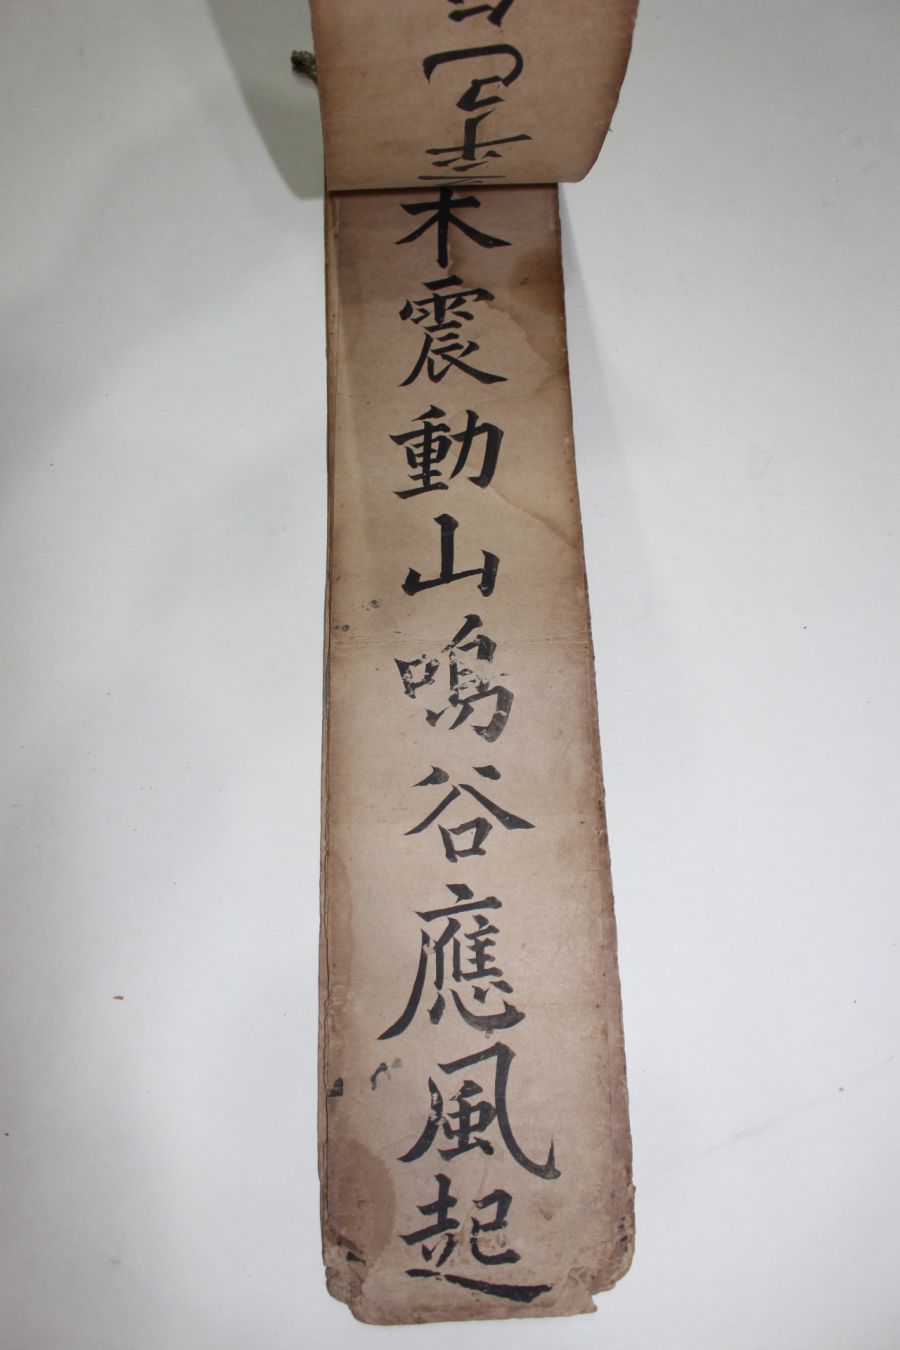 木震動山鳴谷應風起